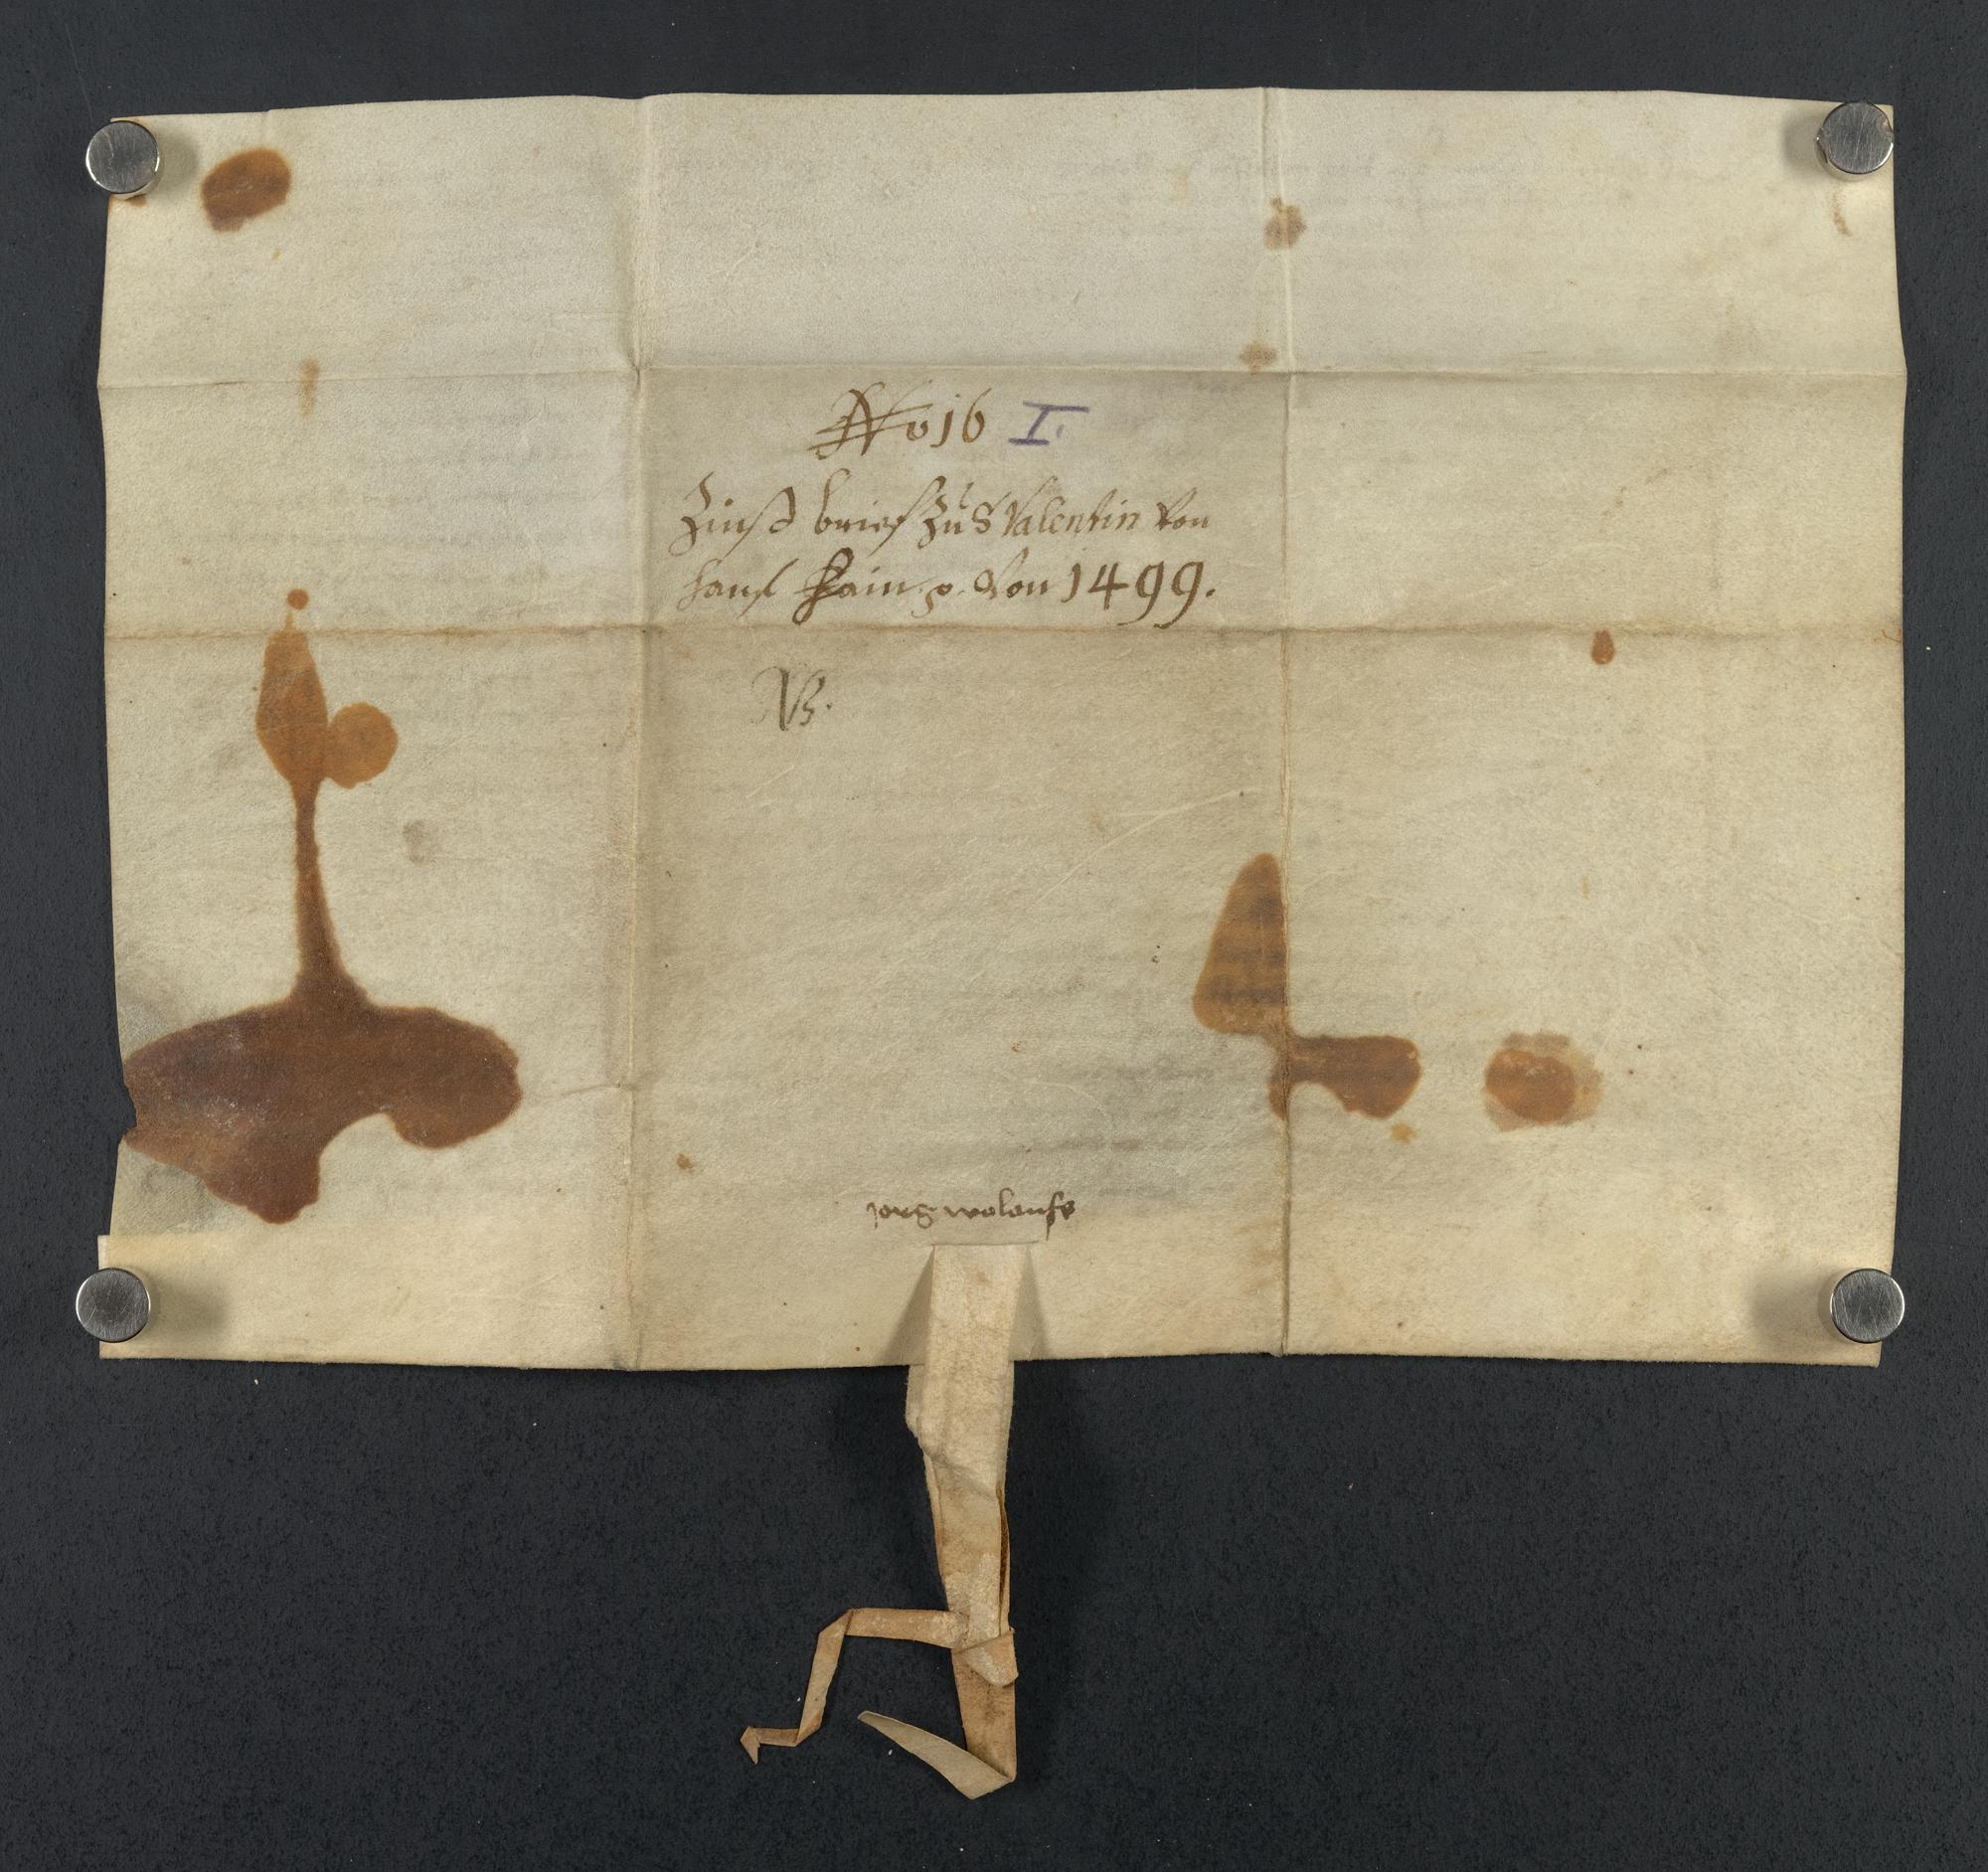 No 16 I.
Zinsd brief Zu S Valentin Von
hans Hainz. Von 1499.
NB.
jorg wolauf